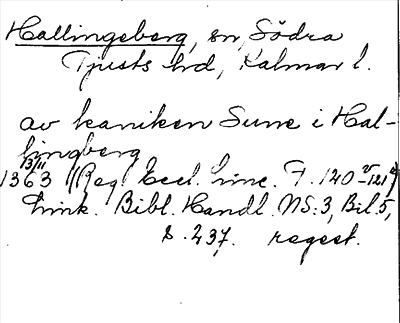 Hallingeberg, sn, Södra
Tjusts hd, Kalmar l.
av kaniken Sune i Hal-
lingberg
13/11
1363 (Reg. Eccl. Linc. F. 120 v-121 r)
Link. Bibl. Handl. NS:3, Bil. 5,
s. 237. regest.